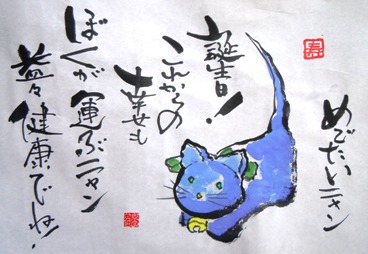 めでたいニャン
誕生日!
これからの
幸せも
ぼくが運ぶニャン
益々健康でね!
寿